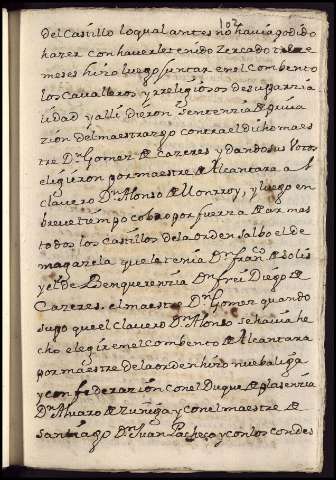 102
del Castillo lo qual antes no havia podido
hazer con haverle tenido Zercado treze
meses hizo luego juntar en el Combento
los Cavalleros y rreligiosos de su parzia
lidad y alli dieron sentenzia de priva
zion del maestrazgo contra el dicho maes
tre Dn Gomez de Cazeres y dandose los votos
eligieron por maestre de Alcantara a l
clavero Dn Alonso de Monrroy, y luego en
breve tiempo cobro por fuerza de armas
todos los castillos de la orden salbo el de
magazela que le tenia Dn franco de Solis
y el de Benquerenzia Dn frei Diego de
Cazeres. el maestre Dn Gomez quando
supo que el clavero Dn Alonso se havia he
cho elegir en el Combento de Alcantara
por maestre de la orden hizo nueba liga
y confederazion con el Duque de plasenzia
Dn Alvaro de Zuñiga y con el maestre de
Santiago Dn Juan Pacheco y con los condes